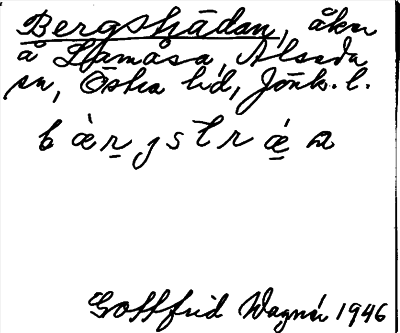 Bergsträdan, åker
å Slamåsa, Alseda
sn, Östra hd, Jönk. l.
b æ̀ r j s t r ǽ a
Gottfrid Wagnér 1946